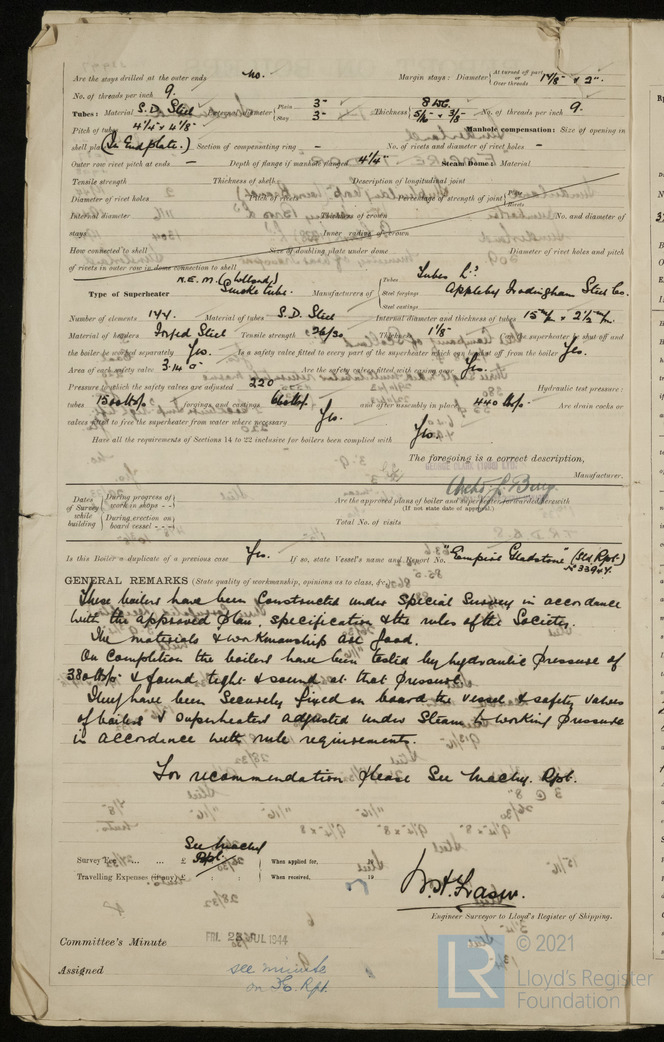 Are the stays drilled at the outer ends No. Margin stays: Diameter { At turned off part, or Over threads 1 7/8" & 2".
No. of threads per inch 9.
Tubes: Material S.D. Steel External diameter { Plain 3" Stay 3" Thickness { 8 WG. 5/16 & 3/8" No. of threads per inch 9.
Pitch of tubes 4 1/4" x 4 1/8" Manhole compensation: Size of opening in
shell plate (In End plate.) Section of compensating ring – No. of rivets and diameter of rivet holes –
Outer row rivet pitch at ends – Depth of flange if manhole flanged 4 1/4" Steam Dome: Material
Tensile strength Thickness of shell Description of longitudinal joint
Diameter of rivet holes Pitch of rivets Percentage of strength of joint { Plate Rivets
Internal diameter Thickness of crown No. and diameter of
stays Inner radius of crown
How connected to shell Size of doubling plate under dome Diameter of rivet holes and pitch
of rivets in outer row in dome connection to shell
Type of Superheater N.E.M. (Holland's) Smoke tube. Manufacturers of { Tubes Tubes Ld. Steel forgings Appleby Frodingham Steel Co. Steel castings
Number of elements 144. Material of tubes S.D. Steel Internal diameter and thickness of tubes 15 m/m & 2 1/2 m/m.
Material of headers Forged Steel Tensile strength 26/30 Thickness 1 1/8" Can the superheater be shut off and
the boiler be worked separately Yes. Is a safety valve fitted to every part of the superheater which can be shut off from the boiler Yes.
Area of each safety valve 3.14 □" Are the safety valves fitted with easing gear Yes.
Pressure to which the safety valves are adjusted 220 Hydraulic test pressure:
tubes 1500 lbs/□" forgings and castings 660 lbs/□" and after assembly in place 440 lbs/□" Are drain cocks or
valves fitted to free the superheater from water where necessary Yes.
Have all the requirements of Sections 14 to 22 inclusive for boilers been complied with Yes.
The foregoing is a correct description,
GEORGE CLARK (1938) LTD.
Manufacturer.
Dates of Survey while building { During progress of work in shops - - { During erection on board vessel - - - Are the approved plans of boiler and superheater forwarded herewith
(If not state date of approval.)
Total No. of visits
Is this Boiler a duplicate of a previous case Yes. If so, state Vessel's name and Report No. "Empire Gladstone" (Sld Rpt.)
No 33947.
GENERAL REMARKS (State quality of workmanship, opinions as to class, &c.
These boilers have been constructed under Special Survey in accordance
with the approved plan, specification & the rules of the Society.
The materials & workmanship are good.
On completion the boilers have been tested by hydraulic pressure of
380 lbs/□" & found tight & sound at that pressure.
They have been securely fixed on board the vessel & safety valves
of boilers & superheaters adjusted under steam to working pressure
in accordance with rule requirements.
For recommendation please see Machy. Rpt.
Survey Fee ... ... £ See Machy Rpt. When applied for,
Travelling Expenses (if any) £ : : When received, 19
W.A. Fraser.
Engineer Surveyor to Lloyd's Register of Shipping.
Committee's Minute FRI. 28 JUL 1944
Assigned see minute
on F.E. Rpt.
© 2021
Lloyd's Register
Foundation